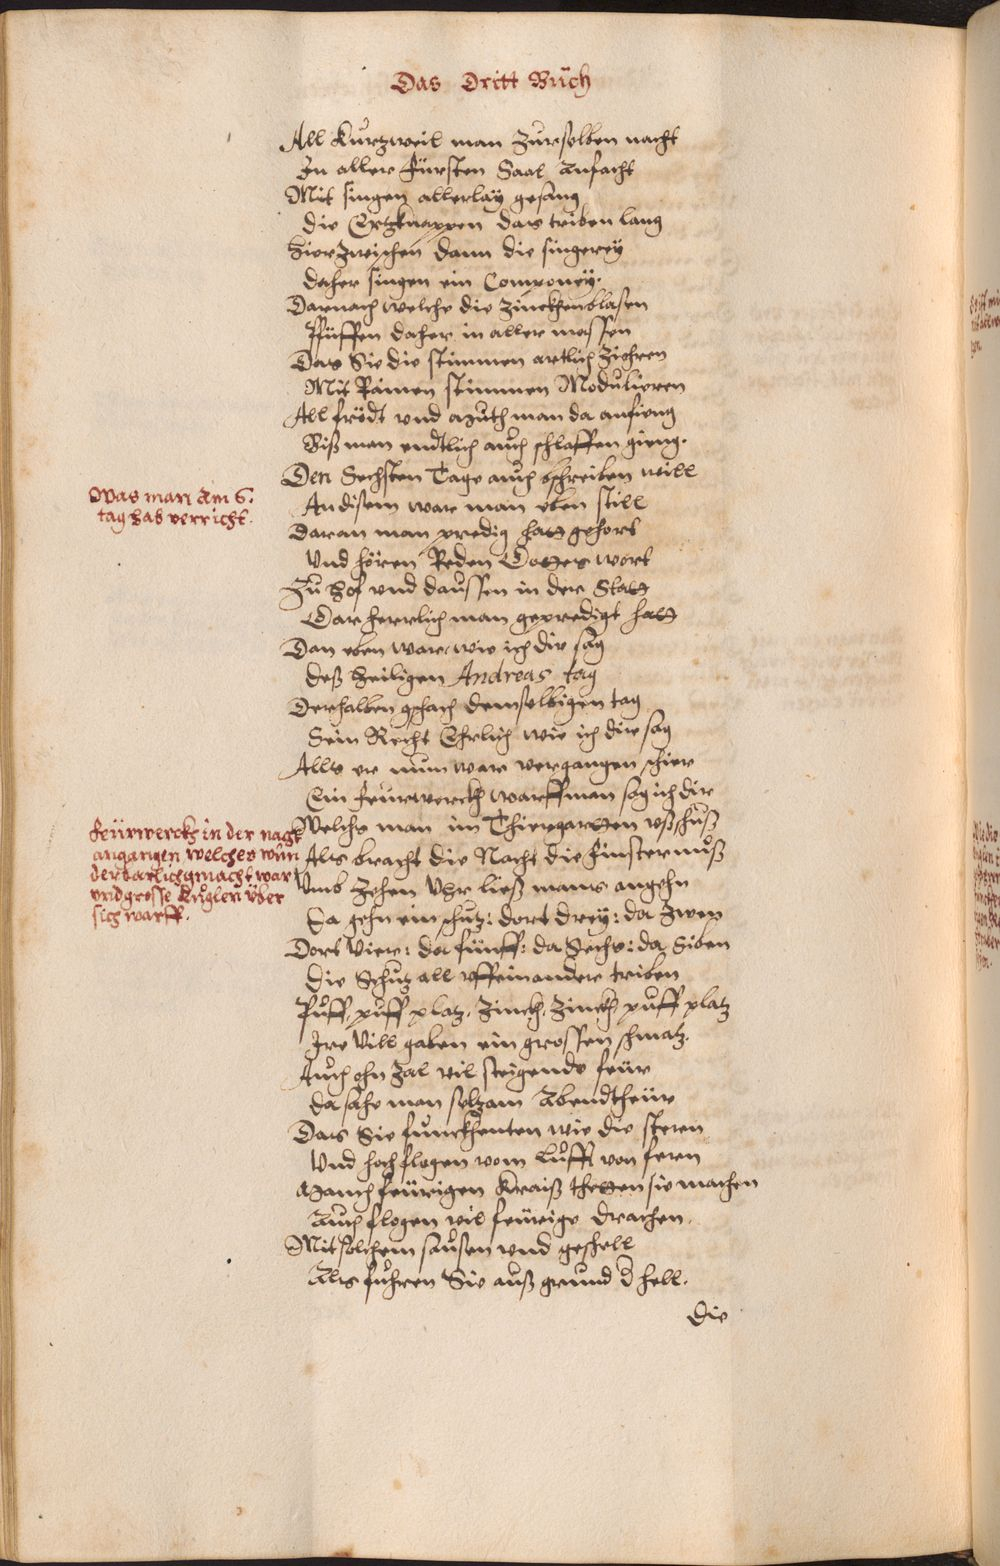 Das Dritt Bůch
All kurtzweil man zur selben nacht
In aller Fürsten Saal Anfacht
Mit singen allerlaÿ gesang
die Ertzknappen das triben lang
Hierzwischen dann die singereÿ
daher singen ein Componeÿ.
Darnach welche die Zinckhen blasen
Pfüffen daher in aller massen
Das Sie die stimmen artlich ziehren
Mit Rainen stimmen Modulieren
All fröd und muth man da anfieng
Biß man endtlich auch schlaffen gieng.
Den Sechsten Tage auch bschreiben will
An disem war man eben still
Daran man predig hatt gehort
Und hören Reden Gottes wort
Zu Hof und daussen in der Statt
Gar herrlich man gepredigt hatt
Dan eben ware wie ich dir sag
deß Heiligen Andreas tag
Derhalben gschach demselbigen tag
Sein Recht Ehrlich wie ich dir sag
Alls er nun war vergangen schier
Ein feurwerckh warff man sag ich dir
Welchs man im Thiergartten ußschuß
Als bracht die Nacht die finsternuß
Umb Zehen Uhr ließ mans angehn
Da gehn ein schutz: dort dreÿ: da zwen
Dort Vier: da fünff: da Sechs: da Siben
die Schutz all uff einander triben
Puff, puff platz, Zinckh, Zinckh puff platz
Ire Vill gaben ein grossen schmatz.
Auch ohn zal vil steigende feür
da sahe man seltzam Abendtheür
Das Sie funckhenten wie die stern
Und hoch flogen vom Lufft von fern
Manch feürigen Kraiß thetten sie machen
Auch flogen vil feurige drachen.
Mit solchem sausen und geschell
Als fuhren Sie auß grund d hell.
die
Was man Am 6.
tag hab verricht.
Feürwerckh in der nacht
angangen welches wun
derbarlich gmacht war
und grosse Kuglen über
sich warff.